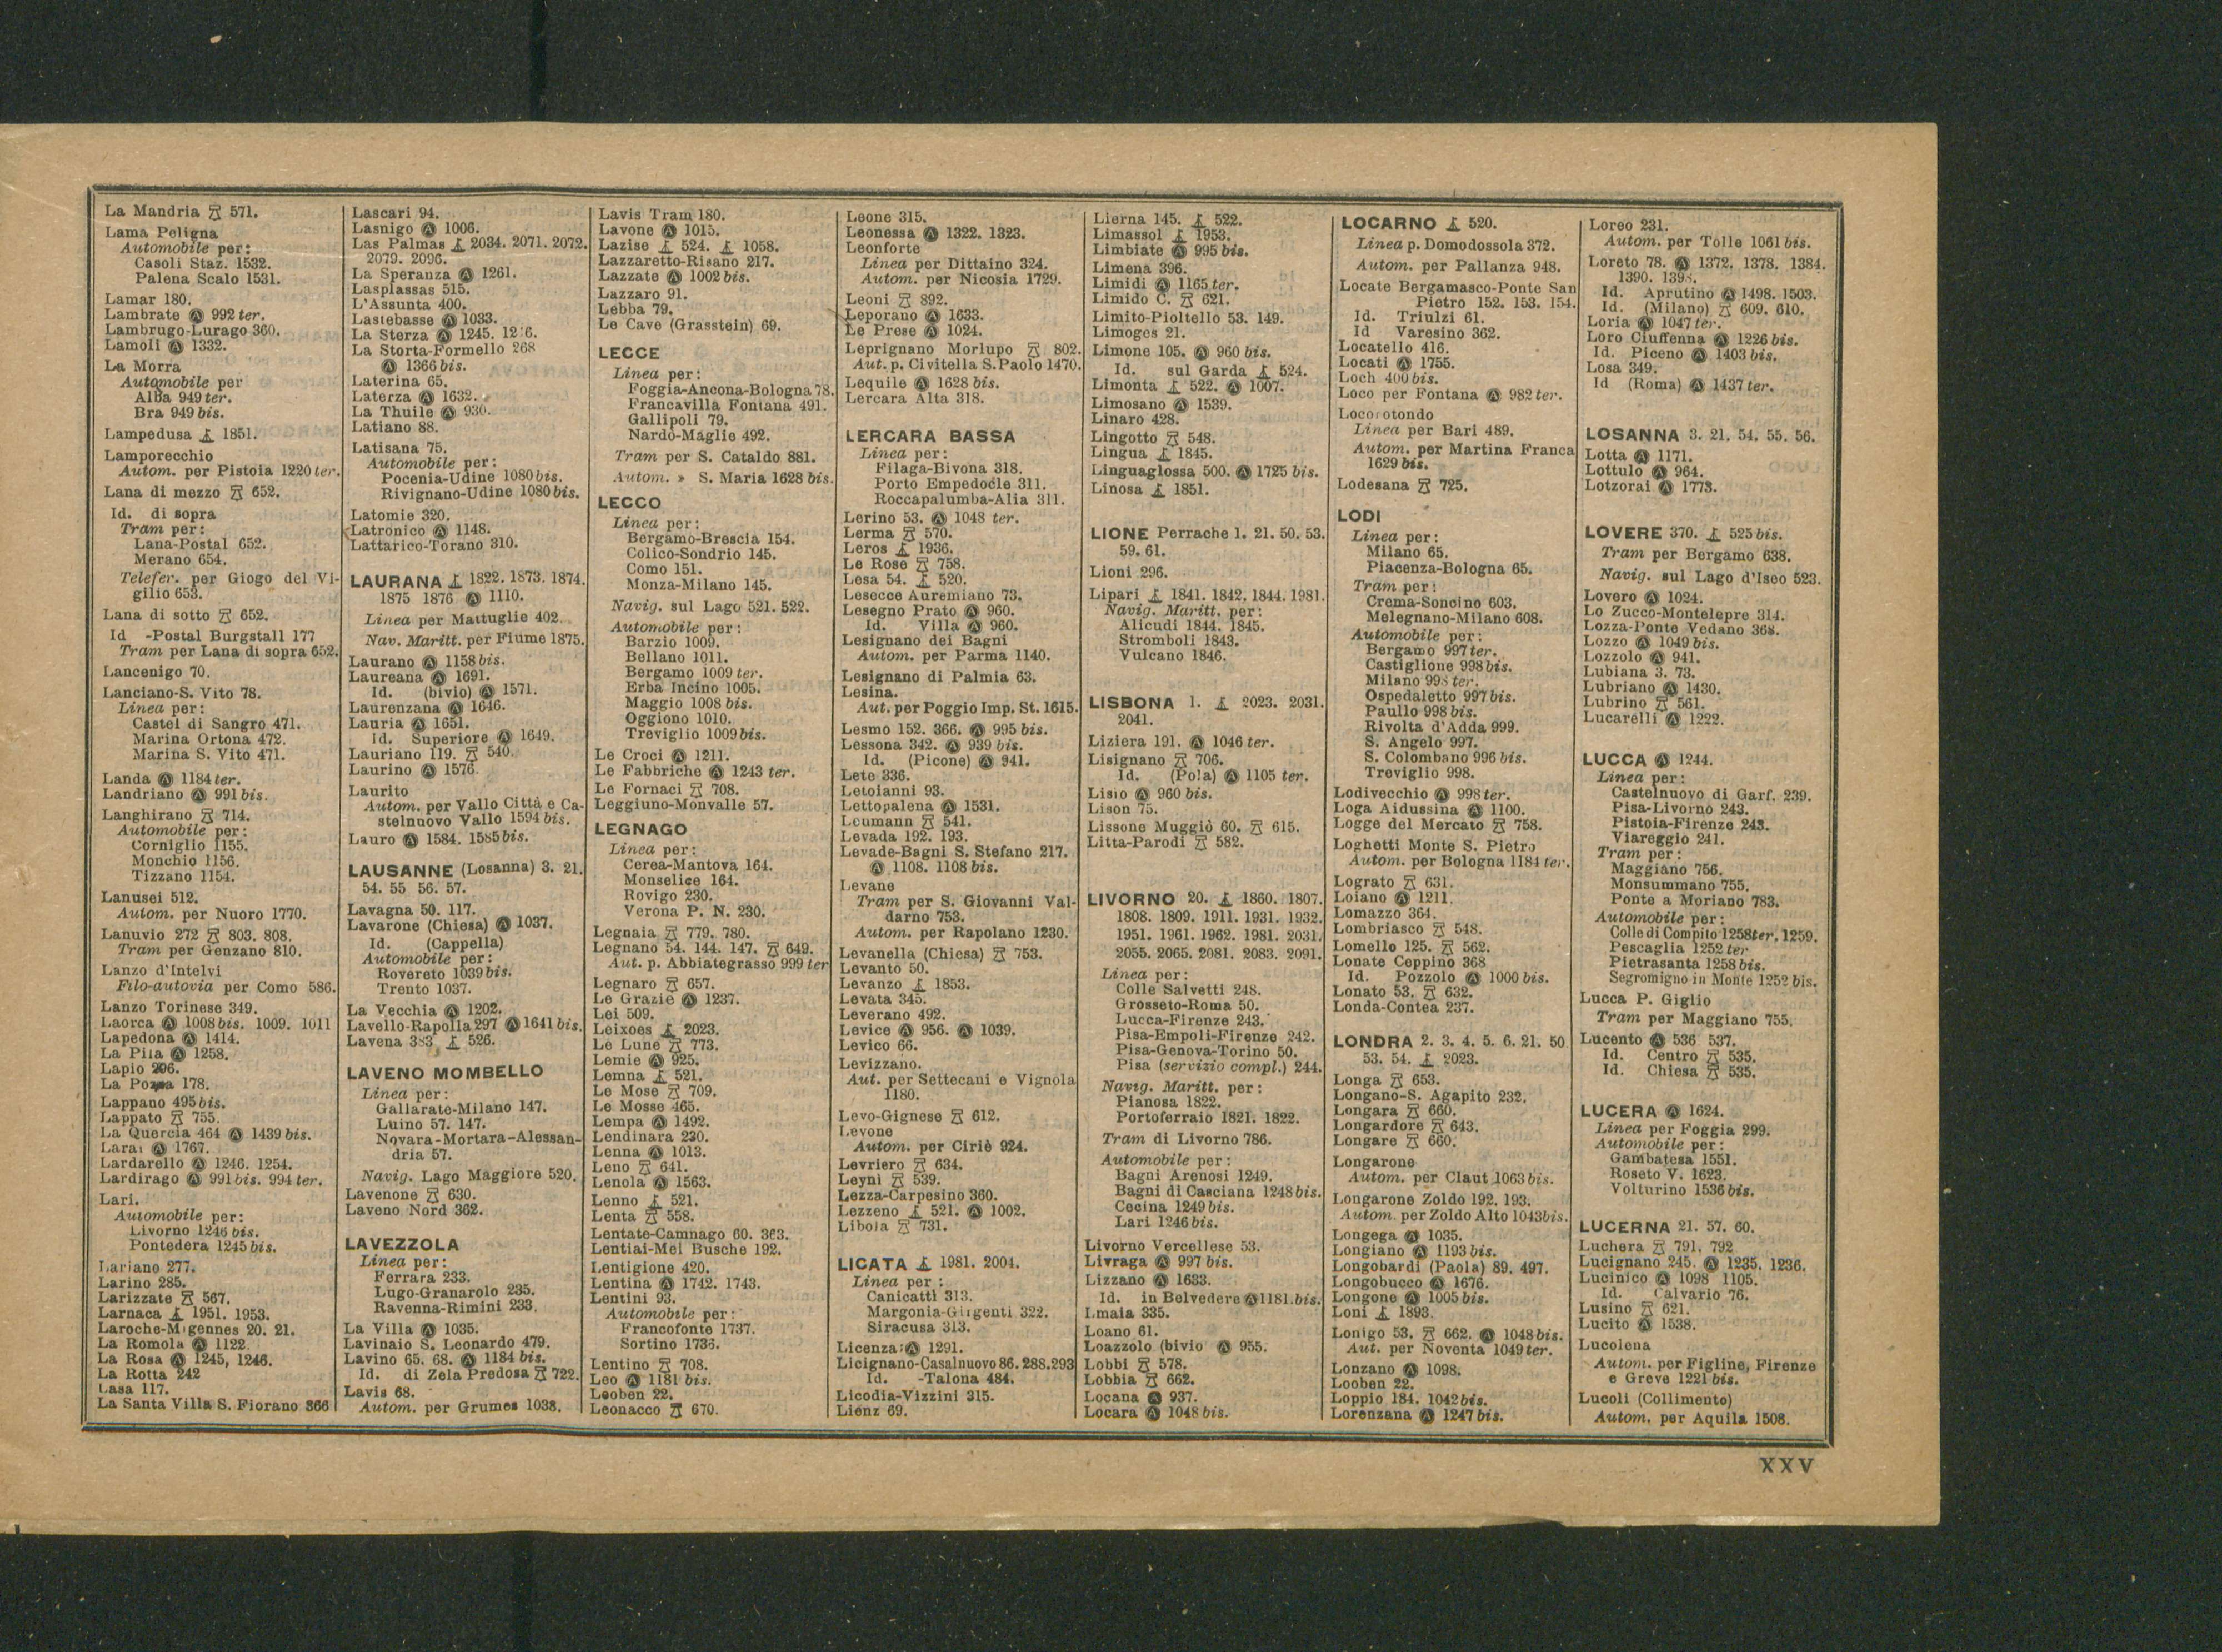 La Mandria 571.
Lama Peligna
Automobile per:
Casoli Staz. 1532.
Palena Scalo 1531.
Lamar 180.
Lambrate Ⓐ 992 ter.
Lambrugo-Lurago 360.
Lamoli Ⓐ 1332.
La Morra
Automobile per
Alba 949 ter.
Bra 949 bis.
Lampedusa 1851.
Lamporecchio
Autom. per Pistoia 1220 ter.
Lana di mezzo 652.
Id. di sopra
Tram per:
Lana-Postal 652.
Merano 654.
Telefer. per Giogo del Vi-
gilio 653.
Lana di sotto 652.
Id -Postal Burgstall 177
Tram per Lana di sopra 652.
Lancenigo 70.
Lanciano-S. Vito 78.
Linea per:
Castel di Sangro 471.
Marina Ortona 472.
Marina S. Vito 471.
Landa Ⓐ 1184 ter.
Landriano Ⓐ 991 bis.
Langhirano 714.
Automobile per:
Corniglio 1155.
Monchio 1156.
Tizzano 1154.
Lanusei 512.
Autom. per Nuoro 1770.
Lanuvio 272 803. 808.
Tram per Genzano 810.
Lanzo d'Intelvi
Filo-autovia per Como 586.
Lanzo Torinese 349.
Laorca Ⓐ 1008 bis. 1009. 1011
Lapedona Ⓐ 1414.
La Pila Ⓐ 1258.
Lapio 296.
La 178.
Lappano 495 bis.
Lappato 755.
La Quercia 464 Ⓐ 1439 bis.
Ⓐ 1767.
Lardarello Ⓐ 1246. 1254.
Lardirago Ⓐ 991 bis. 994 ter.
Lari.
Automobile per:
Livorno 1246 bis.
Pontedera 1245 bis.
Lariano 277.
Larino 285.
Larizzate 567.
Larnaca 1951. 1953.
Laroche-Migennes 20. 21.
La Romola Ⓐ 1122.
La Rosa Ⓐ 1245, 1246.
La Rotta 242
Lasa 117.
La Santa Villa S. Fiorano 366
Lascari 94.
Lasnigo Ⓐ 1006.
Las Palmas 2034. 2071. 2072.
2079. 2096.
La Speranza Ⓐ 1261.
Lasplassas 515.
L'Assunta 400.
Lastebasse Ⓐ 1033.
La Sterza Ⓐ 1245.
La Storta-Formello 268
Ⓐ 1366 bis.
Laterina 65.
Laterza Ⓐ 1632.
La Thuile Ⓐ 930.
Latiano 88.
Latisana 75.
Automobile per:
Pocenia-Udine 1080 bis.
Rivignano-Udine 1080 bis.
Latomie 320.
Latronico Ⓐ 1148.
Lattarico-Torano 310.
LAURANA 1822. 1873. 1874.
1875 1876 Ⓐ 1110.
Linea per Mattuglie 402.
Nav. Maritt. per Fiume 1875.
Laurano Ⓐ 1158 bis.
Laureana Ⓐ 1691.
Id. (bivio) Ⓐ 1571.
Laurenzana Ⓐ 1646.
Lauria Ⓐ 1651.
Id. Superiore Ⓐ 1649.
Lauriano 119. 540.
Laurino Ⓐ 1576.
Laurito
Autom. per Vallo Città e Ca-
stelnuovo Vallo 1594 bis.
Lauro Ⓐ 1584. 1585 bis.
LAUSANNE (Losanna) 3. 21.
54. 55 56. 57.
Lavagna 50. 117.
Lavarone (Chiesa) Ⓐ 1037.
Id. (Cappella)
Automobile per:
Rovereto 1039 bis.
Trento 1037.
La Vecchia Ⓐ 1202.
Lavello-Rapolla 297 Ⓐ 1641 bis.
Lavena 383 526.
LAVENO MOMBELLO
Linea per:
Gallarate-Milano 147.
Luino 57. 147.
Novara-Mortara-Alessan-
dria 57.
Navig. Lago Maggiore 520.
Lavenone 630.
Laveno Nord 362.
LAVEZZOLA
Linea per:
Ferrara 233.
Lugo-Granarolo 235.
Ravenna-Rimini 233.
La Villa Ⓐ 1035.
Lavinaio S. Leonardo 479.
Lavino 65. 68. Ⓐ 1184 bis.
Id. di Zela Predosa 722.
Lavis 68.
Autom. per Grumes 1038.
Lavis Tram 180.
Lavone Ⓐ 1015.
Lazise 524. 1058.
Lazzaretto-Risano 217.
Lazzate Ⓐ 1002 bis.
Lazzaro 91.
Lebba 79.
Le Cave (Grasstein) 69.
LECCE
Linea per:
Foggia-Ancona-Bologna 78.
Francavilla Fontana 491.
Gallipoli 79.
Nardò-Maglie 492.
Tram per S. Cataldo 881.
Autom. » S. Maria 1628 bis.
LECCO
Linea per:
Bergamo-Brescia 154.
Colico-Sondrio 145.
Como 151.
Monza-Milano 145.
Navig. sul Lago 521. 522.
Automobile per:
Barzio 1009.
Bellano 1011.
Bergamo 1009 ter.
Erba Incino 1005.
Maggio 1008 bis.
Oggiono 1010.
Treviglio 1009 bis.
Le Croci Ⓐ 1211.
Le Fabbriche Ⓐ 1243 ter.
Le Fornaci 708.
Leggiuno-Monvalle 57.
LEGNAGO
Linea per:
Cerea-Mantova 164.
Monselice 164.
Rovigo 230.
Verona P. N. 230.
Legnaia 779. 780.
Legnano 54. 144. 147. 649.
Aut. p. Abbiategrasso 999 ter
Legnaro 657.
Le Grazie Ⓐ 1237.
Lei 509.
Leixoes 2023.
Le Lune 773.
Lemie Ⓐ 925.
Lemna 521.
Le Mose 709.
Le Mosse 465.
Lempa Ⓐ 1492.
Lendinara 230.
Lenna Ⓐ 1013.
Leno 641.
Lenola Ⓐ 1563.
Lenno 521.
Lenta 558.
Lentate-Camnago 60. 363.
Lentiai-Mel Busche 192.
Lentigione 420.
Lentina Ⓐ 1742. 1743.
Lentini 93.
Automobile per:
Francofonte 1737.
Sortino 1736.
Lentino 708.
Leo Ⓐ 1181 bis.
Leoben 22.
Leonacco 670.
Leone 315.
Leonessa Ⓐ 1322. 1323.
Leonforte
Linea per Dittaino 324.
Autom. per Nicosia 1729.
Leoni 892.
Leporano Ⓐ 1633.
Le Prese Ⓐ 1024.
Leprignano Morlupo 802.
Aut. p. Civitella S. Paolo 1470.
Lequile Ⓐ 1628 bis.
Lercara Alta 318.
LERCARA BASSA
Linea per:
Filaga-Bivona 318.
Porto Empedocle 311.
Roccapalumba-Alia 311.
Lerino 53. Ⓐ 1048 ter.
Lerma 570.
Leros 1936.
Le Rose 758.
Lesa 54. 520.
Lesecce Auremiano 73.
Lesegno Prato Ⓐ 960.
Id. Villa Ⓐ 960.
Lesignano dei Bagni
Autom. per Parma 1140.
Lesignano di Palmia 63.
Lesina.
Aut. per Poggio Imp. St. 1615.
Lesmo 152. 366. Ⓐ 995 bis.
Lessona 342. Ⓐ 939 bis.
Id. (Picone) Ⓐ 941.
Lete 336.
Letoianni 93.
Lettopalena Ⓐ 1531.
Leumann 541.
Levada 192. 193.
Levade-Bagni S. Stefano 217.
Ⓐ 1108. 1108 bis.
Levane
Tram per S. Giovanni Val-
darno 753.
Autom. per Rapolano 1230.
Levanella (Chiesa) 753.
Levanto 50.
Levanzo 1853.
Levata 345.
Leverano 492.
Levice Ⓐ 956. Ⓐ 1039.
Levico 66.
Levizzano.
Aut. per Settecani e Vignola
1180.
Levo-Gignese 612.
Levone
Autom. per Ciriè 924.
Levriero 634.
Leynì 539.
Lezza-Carpesino 360.
Lezzeno 521. Ⓐ 1002.
Libola 731.
LICATA 1981. 2004.
Linea per :
Canicattì 313.
Margonia-Girgenti 322.
Siracusa 313.
Licenza Ⓐ 1291.
Licignano-Casalnuovo 86. 288. 293
Id. -Talona 484.
Licodia-Vizzini 315.
Lienz 69.
Lierna 145. 522.
Limassol 1953.
Limbiate Ⓐ 995 bis.
Limena 396.
Limidi Ⓐ 1165 ter.
Limido C. 621.
Limito-Pioltello 53. 149.
Limoges 21.
Limone 105. Ⓐ 960 bis.
Id. sul Garda 524.
Limonta 522. Ⓐ 1007.
Limosano Ⓐ 1539.
Linaro 428.
Lingotto 548.
Lingua 1845.
Linguaglossa 500. Ⓐ 1725 bis.
Linosa 1851.
LIONE Perrache 1. 21. 50. 53.
59. 61.
Lioni 296.
Lipari 1841. 1842. 1844. 1981.
Navig. Maritt. per:
Alicudi 1844. 1845.
Stromboli 1843.
Vulcano 1846.
LISBONA 1. 2023. 2031.
2041.
Liziera 191. Ⓐ 1046 ter.
Lisignano 706.
Id. (Pola) Ⓐ 1105 ter.
Lisio Ⓐ 960 bis.
Lison 75.
Lissone Muggiò 60. 615.
Litta-Parodi 582.
LIVORNO 20. 1860. 1807.
1808. 1809. 1911. 1931. 1932.
1951. 1961. 1962. 1981. 2031.
2055. 2065. 2081. 2083. 2091.
Linea per:
Colle Salvetti 248.
Grosseto-Roma 50.
Lucca-Firenze 243.
Pisa-Empoli-Firenze 242.
Pisa-Genova-Torino 50.
Pisa (servizio compl.) 244.
Navig. Maritt. per:
Pianosa 1822.
Portoferraio 1821. 1822.
Tram di Livorno 786.
Automobile per:
Bagni Arenosi 1249.
Bagni di Casciana 1248 bis.
Cecina 1249 bis.
Lari 1246 bis.
Livorno Vercellese 53.
Livraga Ⓐ 997 bis.
Lizzano Ⓐ 1633.
Id. in Belvedere Ⓐ 1181. bis.
Lmaia 335.
Loano 61.
Loazzolo (bivio Ⓐ 955.
Lobbi 578.
Lobbia 662.
Locana Ⓐ 937.
Locara Ⓐ 1048 bis.
LOCARNO 520.
Linea p. Domodossola 372.
Autom. per Pallanza 948.
Locate Bergamasco-Ponte San
Pietro 152. 153. 154.
Id. Triulzi 61.
Id Varesino 362.
Locatello 416.
Locati Ⓐ 1755.
Loch 400 bis.
Loco per Fontana Ⓐ 982 ter.
Locorotondo
Linea per Bari 489.
Autom. per Martina Franca
1629 bis.
Lodesana 725.
LODI
Linea per:
Milano 65.
Piacenza-Bologna 65.
Tram per:
Crema-Soncino 603.
Melegnano-Milano 608.
Automobile per:
Bergamo 997 ter.
Castiglione 998 bis.
Milano 998 ter.
Ospedaletto 997 bis.
Paullo 998 bis.
Rivolta d'Adda 999.
S. Angelo 997.
S. Colombano 996 bis.
Treviglio 998.
Lodivecchio Ⓐ 998 ter.
Loga Aidussina Ⓐ 1100.
Logge del Mercato 758.
Loghetti Monte S. Pietro
Autom. per Bologna 1184 ter.
Lograto 631.
Loiano Ⓐ 1211.
Lomazzo 364.
Lombriasco 548.
Lomello 125. 562.
Lonate Ceppino 368
Id. Pozzolo Ⓐ 1000 bis.
Lonato 53. 632.
Londa-Contea 237.
LONDRA 2. 3. 4. 5. 6. 21. 50
53. 54. 2023.
Longa 653.
Longano-S. Agapito 232.
Longara 660.
Longardore 643.
Longare 660.
Longarone
Autom. per Claut 1063 bis.
Longarone Zoldo 192. 193.
Autom. per Zoldo Alto 1043 bis.
Longega Ⓐ 1035.
Longiano Ⓐ 1193 bis.
Longobardi (Paola) 89. 497.
Longobucco Ⓐ 1676.
Longone Ⓐ 1005 bis.
Loni 1893.
Lonigo 53. 662. Ⓐ 1048 bis.
Aut. per Noventa 1049 ter.
Lonzano Ⓐ 1098.
Looben 22.
Loppio 184. 1042 bis.
Lorenzana Ⓐ 1247 bis.
Loreo 231.
Autom. per Tolle 1061 bis.
Loreto 78. Ⓐ 1372. 1378. 1384.
1390. 1398.
Id. Aprutino Ⓐ 1498. 1503.
Id. (Milano) 609. 610.
Loria Ⓐ 1047 ter.
Loro Ciuffenna Ⓐ 1226 bis.
Id. Piceno Ⓐ 1403 bis.
Losa 349.
Id (Roma) Ⓐ 1437 ter.
LOSANNA 3. 21. 54. 55. 56.
Lotta Ⓐ 1171.
Lottulo Ⓐ 964.
Lotzorai Ⓐ 1773.
LOVERE 370. 525 bis.
Tram per Bergamo 638.
Navig. sul Lago d'Iseo 523.
Lovero Ⓐ 1024.
Lo Zucco-Montelepre 314.
Lozza-Ponte Vedano 368.
Lozzo Ⓐ 1049 bis.
Lozzolo Ⓐ 941.
Lubiana 3. 73.
Lubriano Ⓐ 1430.
Lubrino 561.
Lucarelli Ⓐ 1222.
LUCCA Ⓐ 1244.
Linea per:
Castelnuovo di Garf. 239.
Pisa-Livorno 243.
Pistoia-Firenze 243.
Viareggio 241.
Tram per:
Maggiano 756.
Monsummano 755.
Ponte a Moriano 783.
Automobile per:
Colle di Compito 1258 ter. 1259.
Pescaglia 1252 ter
Pietrasanta 1258 bis.
Segromigno in Monte 1252 bis.
Lucca P. Giglio
Tram per Maggiano 755.
Lucento Ⓐ 536 537.
Id. Centro 535.
Id. Chiesa 535.
LUCERA Ⓐ 1624.
Linea per Foggia 299.
Automobile per:
Gambatesa 1551.
Roseto V. 1623.
Volturino 1536 bis.
LUCERNA 21. 57. 60.
Luchera 791. 792
Lucignano 245. Ⓐ 1235. 1236.
Lucinico Ⓐ 1098 1105.
Id. Calvario 76.
Lusino 621.
Lucito Ⓐ 1538.
Lucolena
Autom. per Figline, Firenze
e Greve 1221 bis.
Lucoli (Collimento)
Autom. per Aquila 1508.
XXV